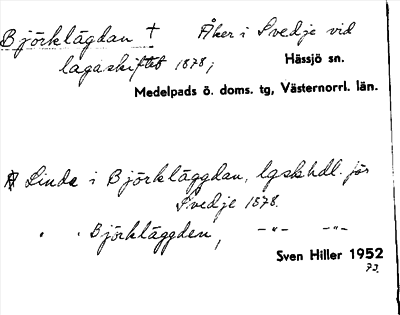 Björklägdan † Åker i Svedje vid
lagaskiftet 1878;
Hässjö sn.
Medelpads ö. doms. tg, Västernorrl. län.
Linda i Björkläggdan, lgskhdl. för
Svedje 1878.
" " Björkläggden, -"- -"-
Sven Hiller 1952
73.